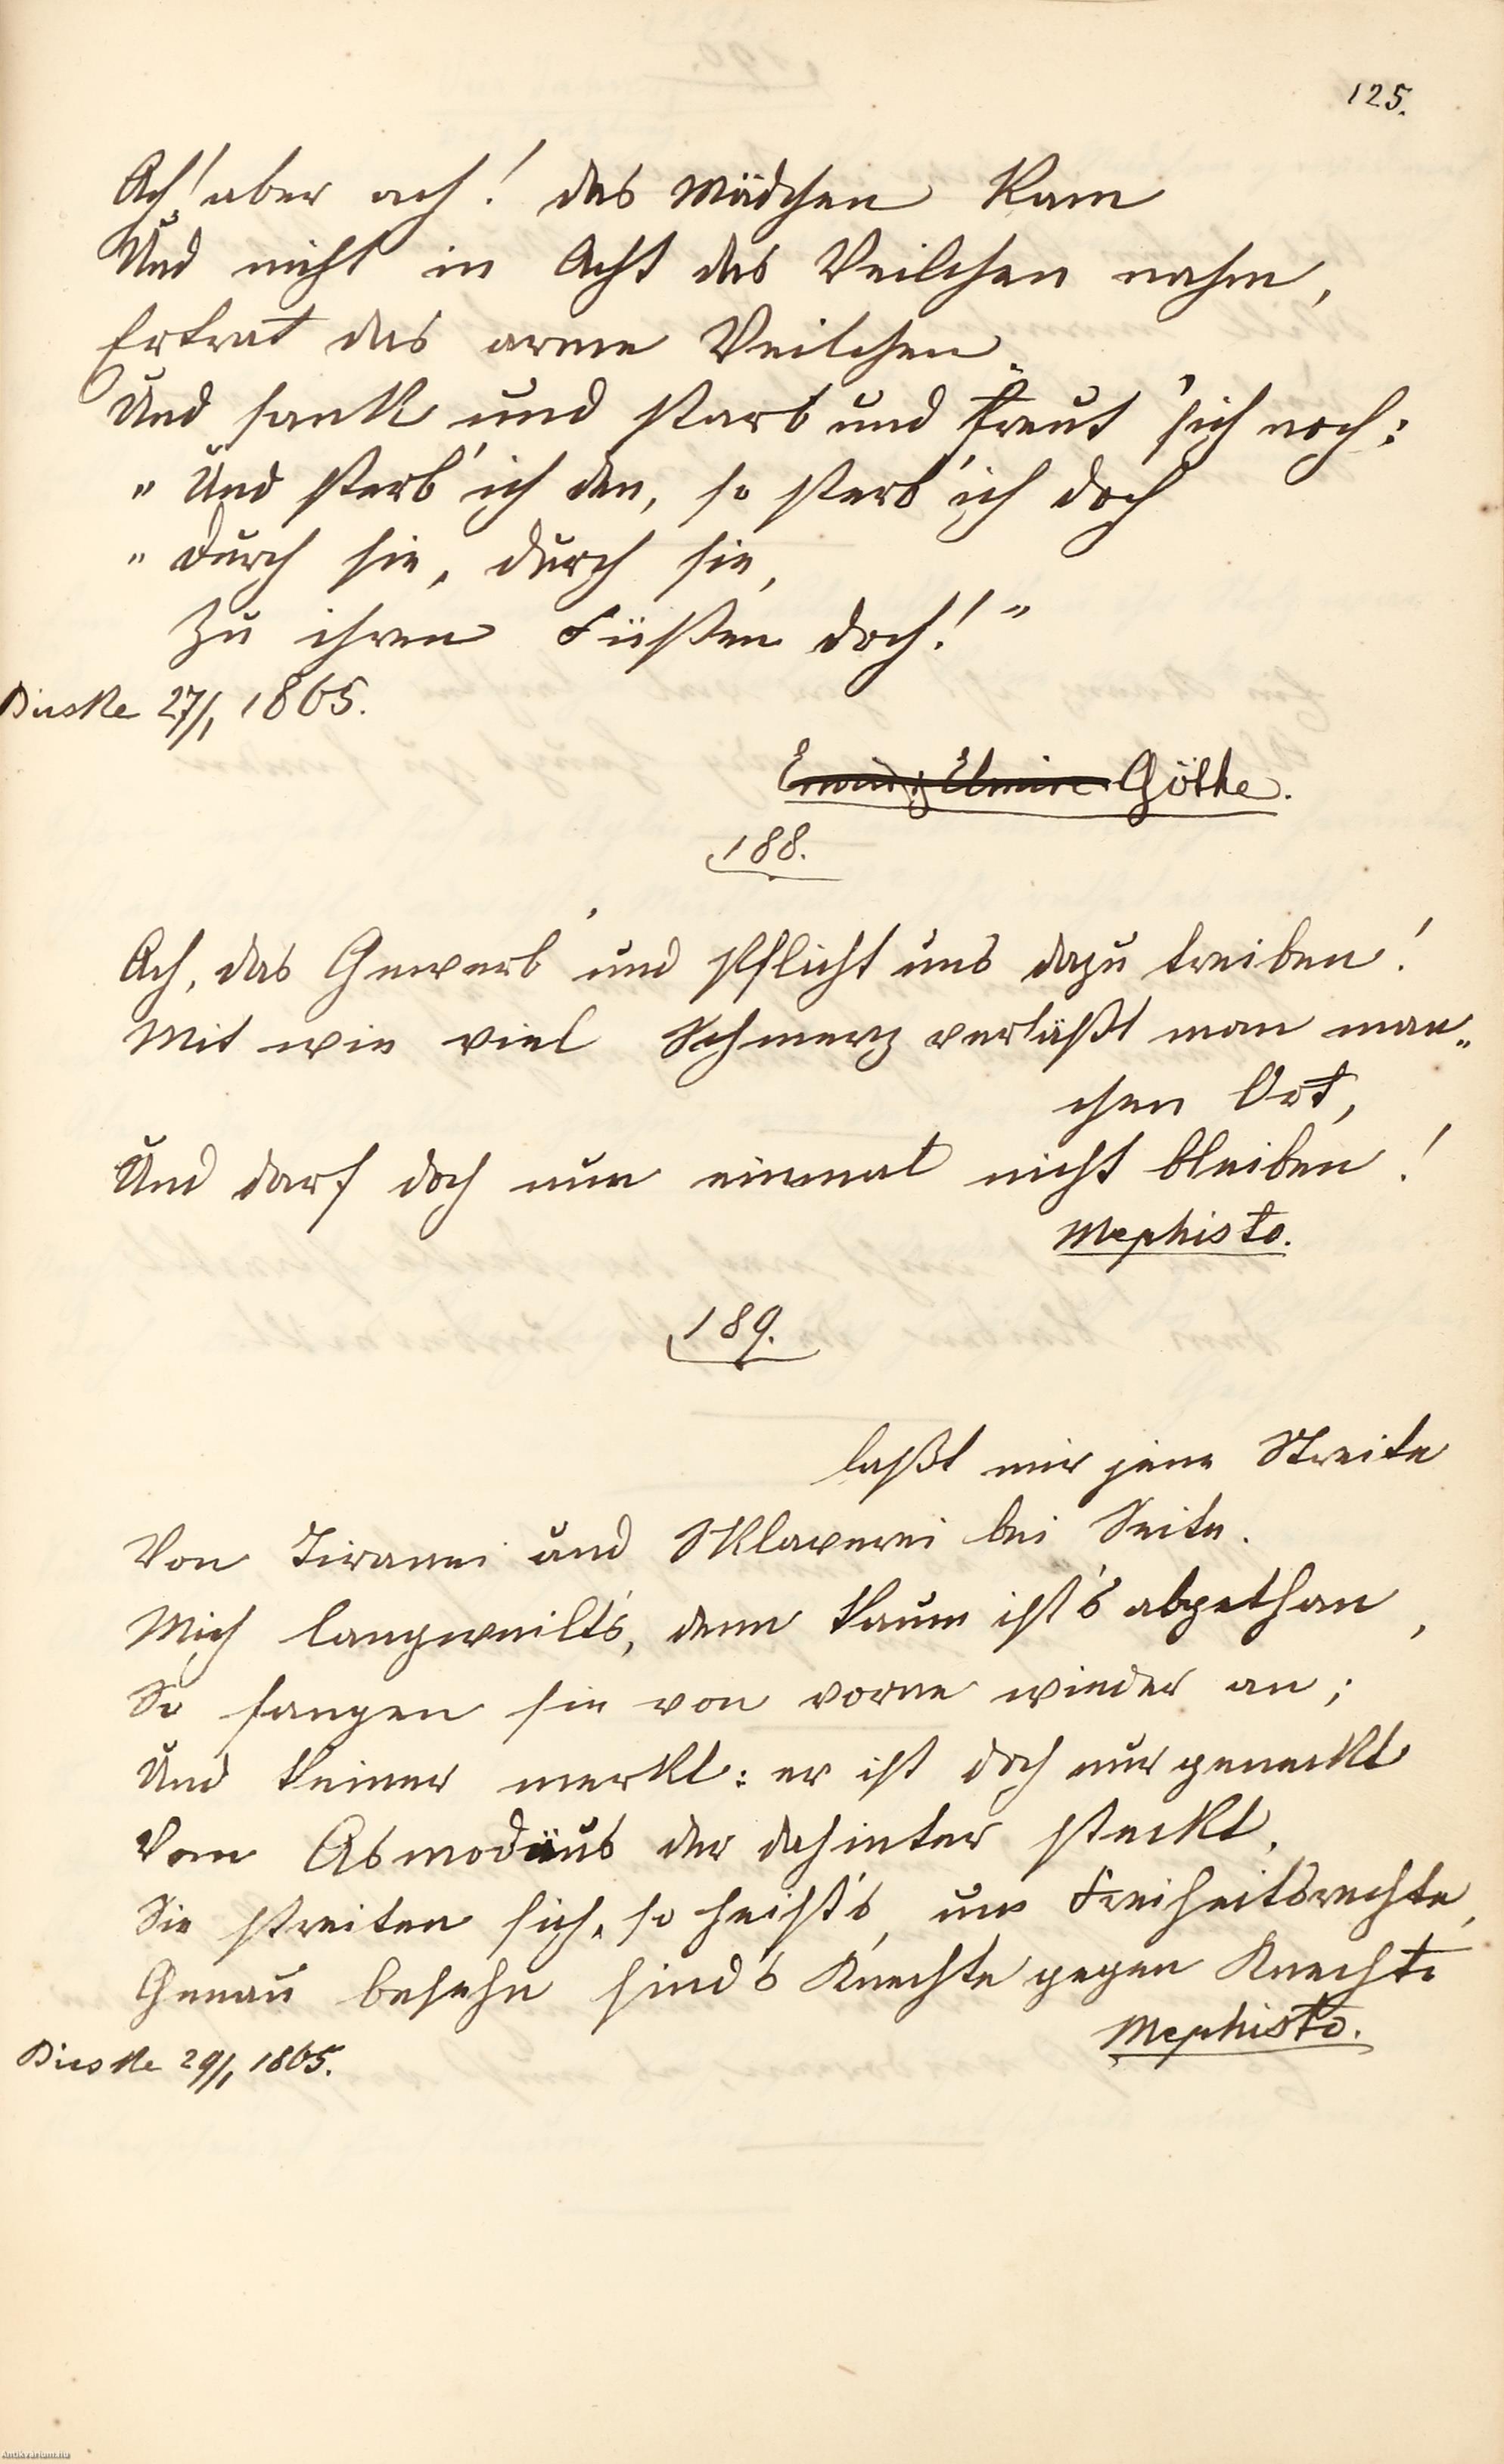 125.
Ach! aber ach! das Mädchen kam
Und nicht in Acht das Veilchen nahm,
Ertrat das arme Veilchen
Und sank und starb und freut' sich noch:
"Und sterb' ich den, so sterb' ich doch
"Durch sie, durch sie,
Zu ihren Füßen doch!"
27/1 1865.
Göthe.
188.
Ach, das Gewerb' und Pflicht uns dazu treiben!
Mit wie viel Schmerz verläßt man man„
chen Ort,
Und darf doch nun einmal nicht bleiben!
Mephisto.
189.
laßt mir jene Streite
Von Tiranei und Sklaverei bei Seite.
Mich langweilt's, denn kaum ist's abgethan,
So fangen sie von vorne wieder an;
Und keiner merkt: er ist doch nur geneckt
Vom Asmodäus der dahinter steckt.
Sie streiten sich, so heißt's, um Freiheitsrechte,
Genau besehn sind's Knechte gegen Knechte
Mephisto.
29/1 1865.
Antikvarium.hu